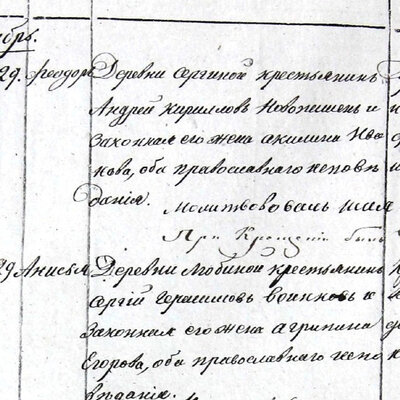 брь.
29. Феодоръ Деревни Сергиной крестьянинъ
Андрей Кирилловъ и
законная его жена Акилина Ива
нова, оба православнаго исповѣ
данія.
Молитвовалъ
При Крещеніи былъ
29 Анисья Деревни крестьянинъ
Сергій Герасимовъ и
законная его жена Агрипина
Егорова, оба православнаго испо
вѣданія.